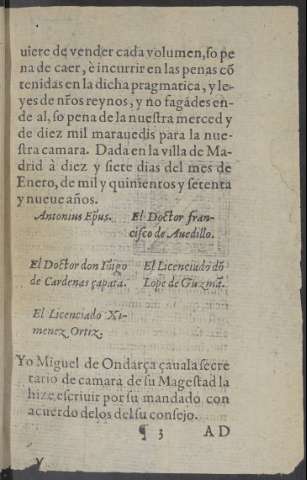 uiere de vender cada volumen, so pe
na de caer, è incurrir en las penas cõ
tenidas en la dicha pragmatica, y le-
yes de nr̃os reynos, y no fagâdes en-
de al, so pena de la nuestra merced y
de diez mil marauedis para la nue-
stra camara. Dada en la villa de Ma-
drid à diez y siete dias del mes de
Enero, de mil y quinientos y setenta
y nueue años.
Antonius Ep̃us. El Doctor fran-
cisco de Auedillo.
El Doctor don Iñigo El Licenciado dõ
de Cardenas çapata. Lope de Guzmã.
El Licenciado Xi-
menez Ortiz.
Yo Miguel de Ondarça çauala secre
tario de camara de su Magestad la
hize escriuir por su mandado con
acuerdo delos del su consejo.
¶ 3 AD